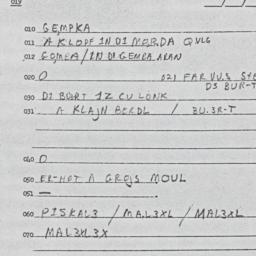 019
010 GEMPKA
011 A KLOPF IN DI MORDA QVLG
012 GOMBA / IN DI GEMBA ARAN
020 O 021 FAR VU.S
030 DI BORT IZ CU LONK
031 A KLAJN BERDL / BU.3R-T
040 O
050 ER-HOT A GROJS MOUL
051 —
060 PISKAL3 / MA.L3XL / MAL3XL
070 MAL3XL3X